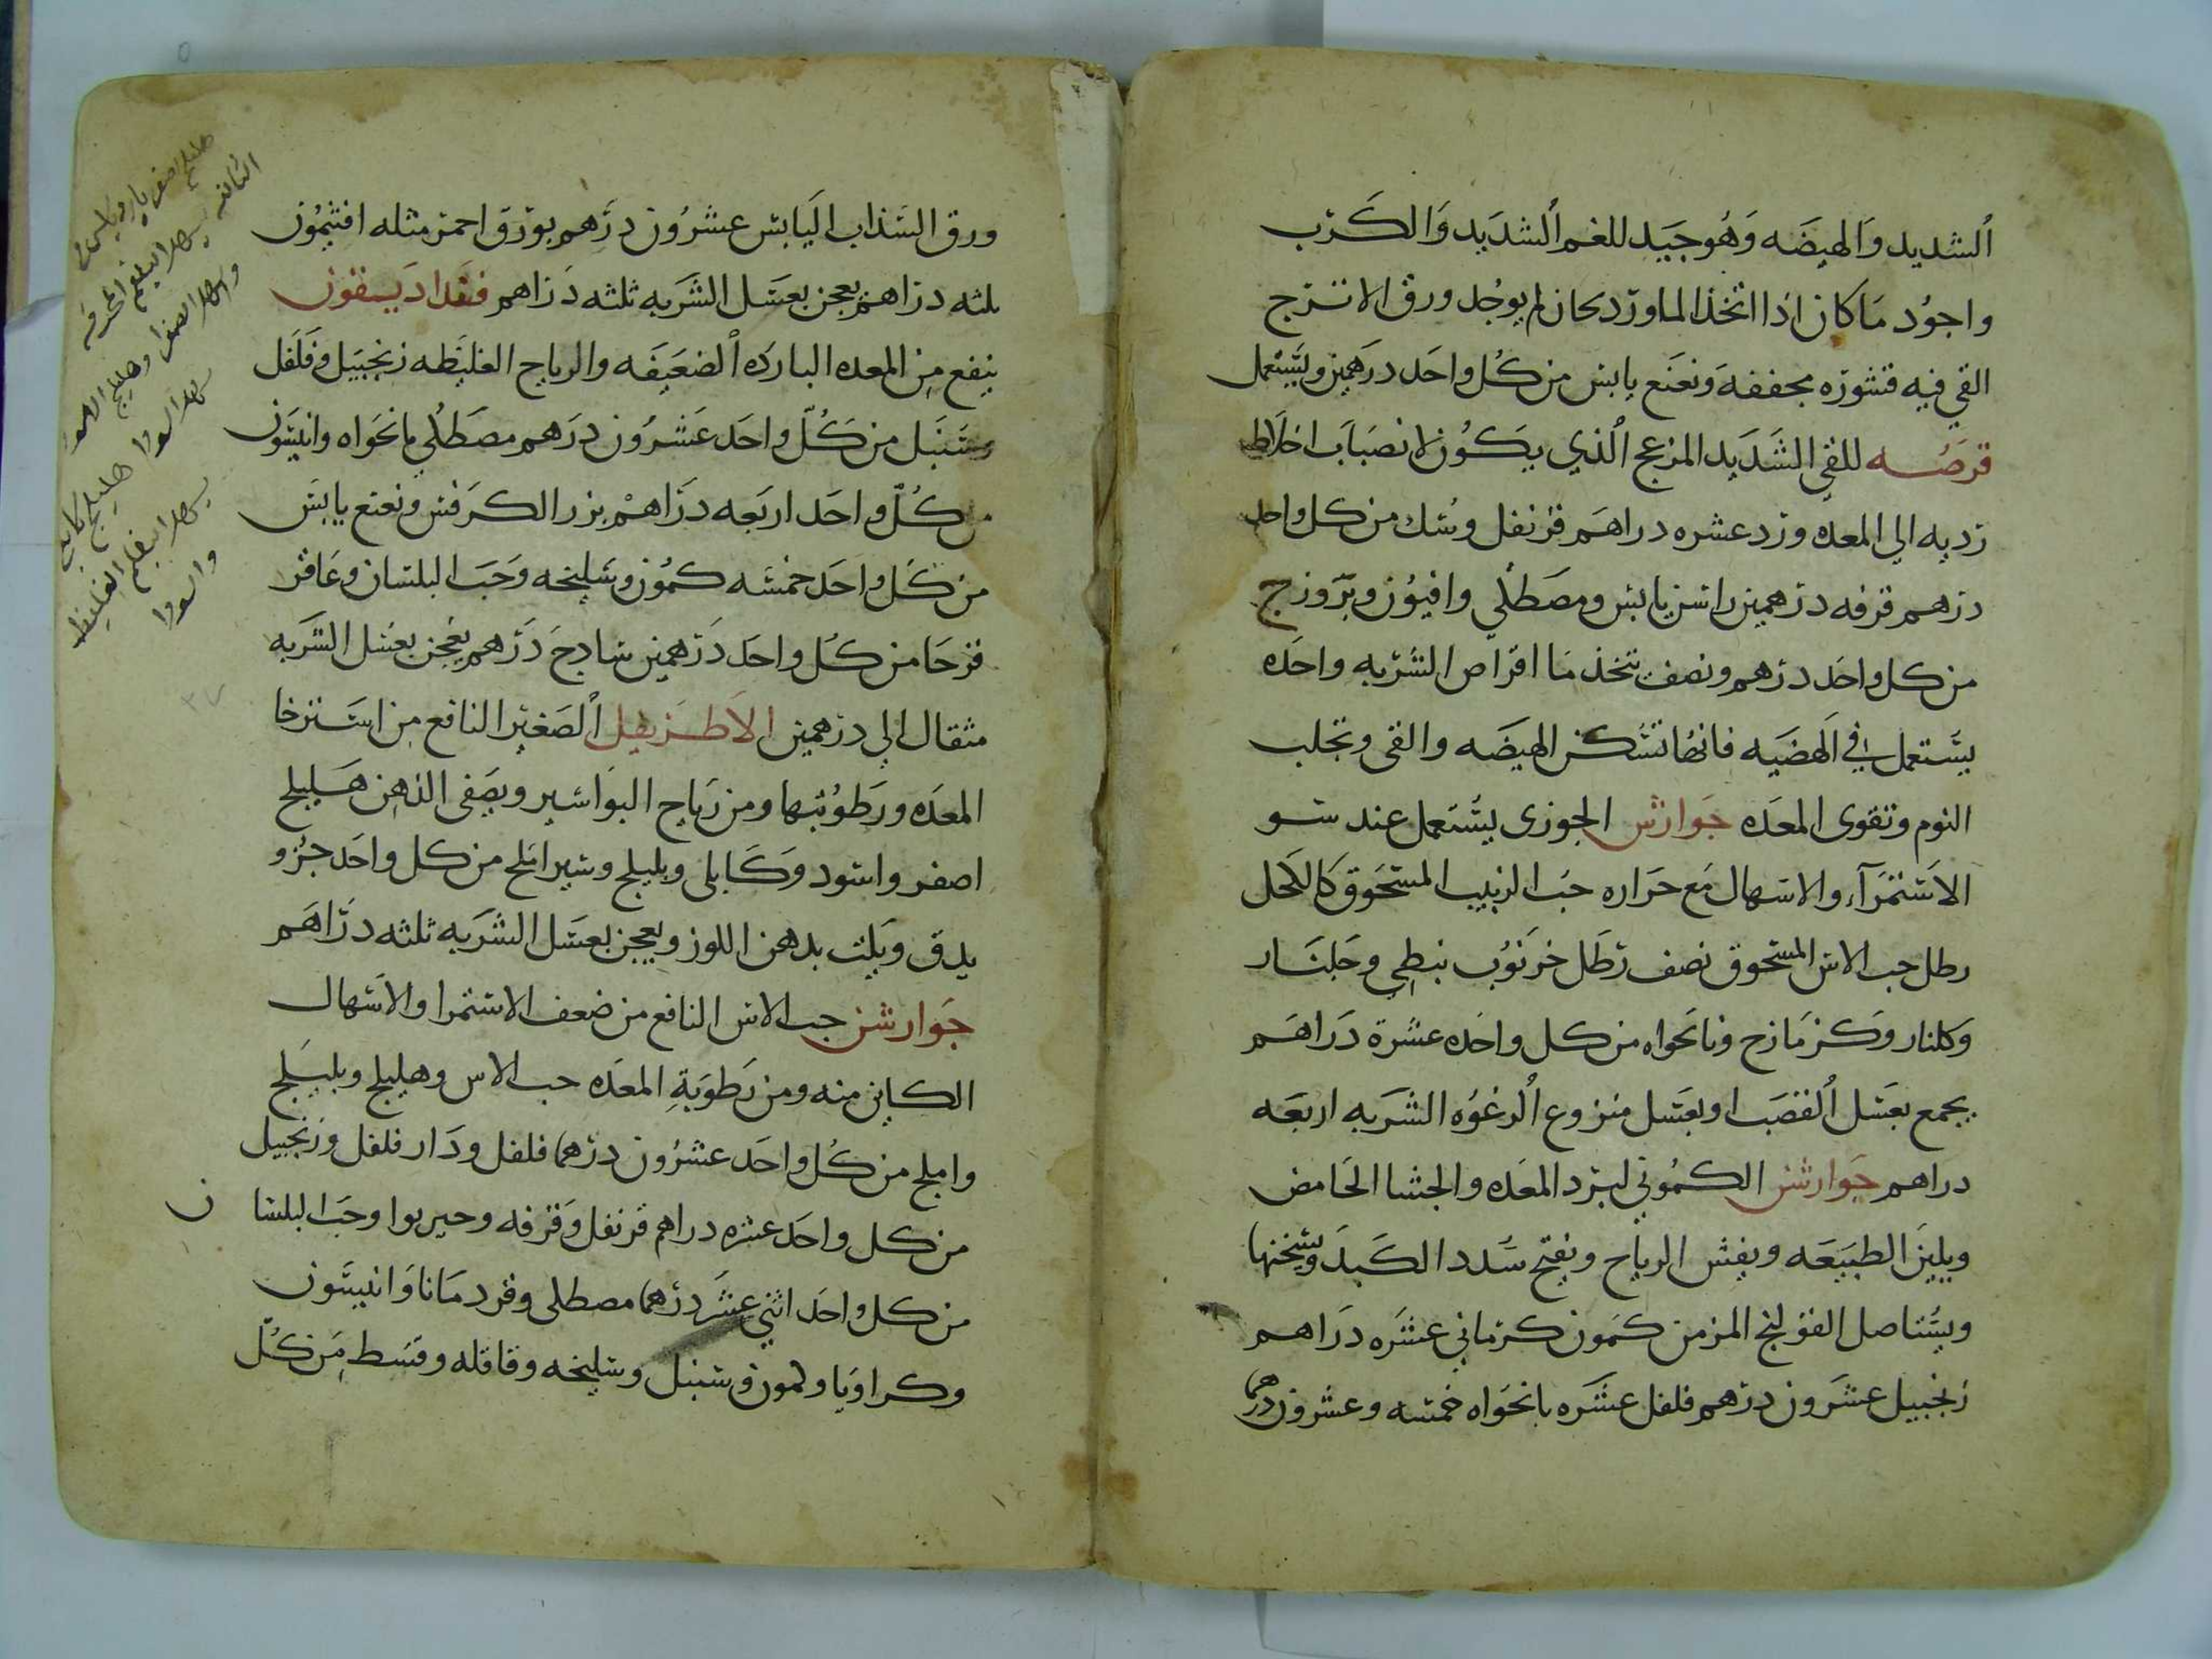 الشديد والهيضه وهو جيد للغم الشديد والكرب
واجود ما كان اذا اتخذ الماورد بحان لم يوجد ورق الاترج
القي فيه قشوره مجففه ونعنع يابس من كل واحد درهمين ويستعمل
قرصه للقي الشديد المزعج الذي يكون لانصباب اخلاط
رديه الي المعده ورد عشره دراهم قرنفل وسك من كل واحد
درهم قرفه درهمين راسن يابس ومصطكي وافيون وبزروزج
من كل واحد درهم ونصف تتخذ منا اقراص الشربه واحده
يستعمل في الهضيه فانها تسكن الهيضه والقي وتجلب
النوم وتقوى المعده جوارش الجوزى يستعمل عند سو
الاستمرآء والاسهال مع حراره حب الزبيب المسحوق كالكحل
رطل حب الاس المسحوق نصف رطل خرنوب نبطي وجلنار
وكلنار وكزمازج ونانخواه من كل واحده عشرة دراهم
يجمع بعسل القصب او بعسل منزوع الرغوه الشربه اربعه
دراهم جوارشن الكموني لبرد المعده والجشا الحامض
ويلين الطبيعه ويفش الرياح ونفتح سدد الكبد ويسخنها
ويستاصل القولنج المزمن كمون كرماني عشره دراهم
زنجبيل عشرون درهم فلفل عشره نانخواه خمسه وعشرون درهما
ورق السذاب اليابس عشرون درهم بورق احمر مثله افتيمون
ثلثه دراهم يعجن بعسل الشربه ثلثه دراهم فقداديسفون
ينفع من المعده البارده الضعيفه والرياح الغليظه زنجبيل وفلفل
وسنبل من كل واحد عشرون درهم مصطكي نانخواه وانيسون
من كل واحد اربعه دراهم بزر الكرفس ونعنع يابس
من كل واحد خمسه كمون وسليخه وحب البلسان وعاقر
قرحا من كل واحد درهمين سادج درهم يعجن بعسل الشربه
مثقال الي درهمين الاطريفل الصغير النافع من استرخا
المعده ورطوبتها ومن رياح البواسير ويصفى الذهن هليلج
اصفر واسود وكابلى وبليلج وشيراملج من كل واحد جزو
يدق ويلت بدهن اللوز ويعجن بعسل الشربه ثلثه دراهم
جوارشن حب الاس النافع من ضعف الاستمرا والاسهال
الكاين منه ومن رطوبة المعده حب الاس وهليلج وبليلج
واملج من كل واحد عشرون درهما فلفل ودار فلفل وزنجبيل
من كل واحد عشره دراهم قرنفل وقرفه وخيربوا وحب البلسا ن
من كل واحد اثني عشر درهما مصطكى وقردمانا وانيسون
وكراويا وكمون وسنبل وسليخه وقاقله وقسط من كل
هليلج اصفر بارد يابس
الثانيه يسهل البلغم
وا يسهل الصفرا وهليلج الاسود
يسهل السودا هليلج كابلي
يسهل البلغم الغليظ
والسودا